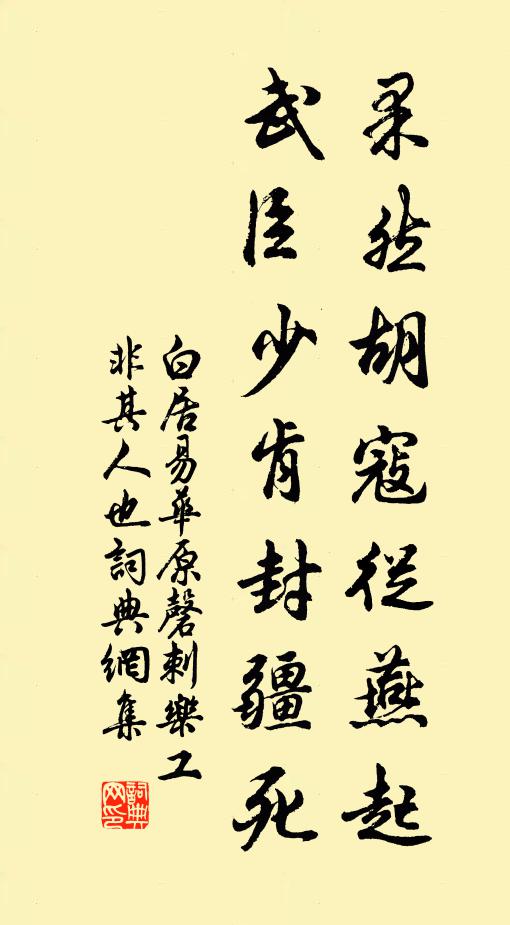 果然胡寇從燕起
武臣少肯封疆死
白居易華原磬刺樂工
非其人也詞典網集
詞典網印